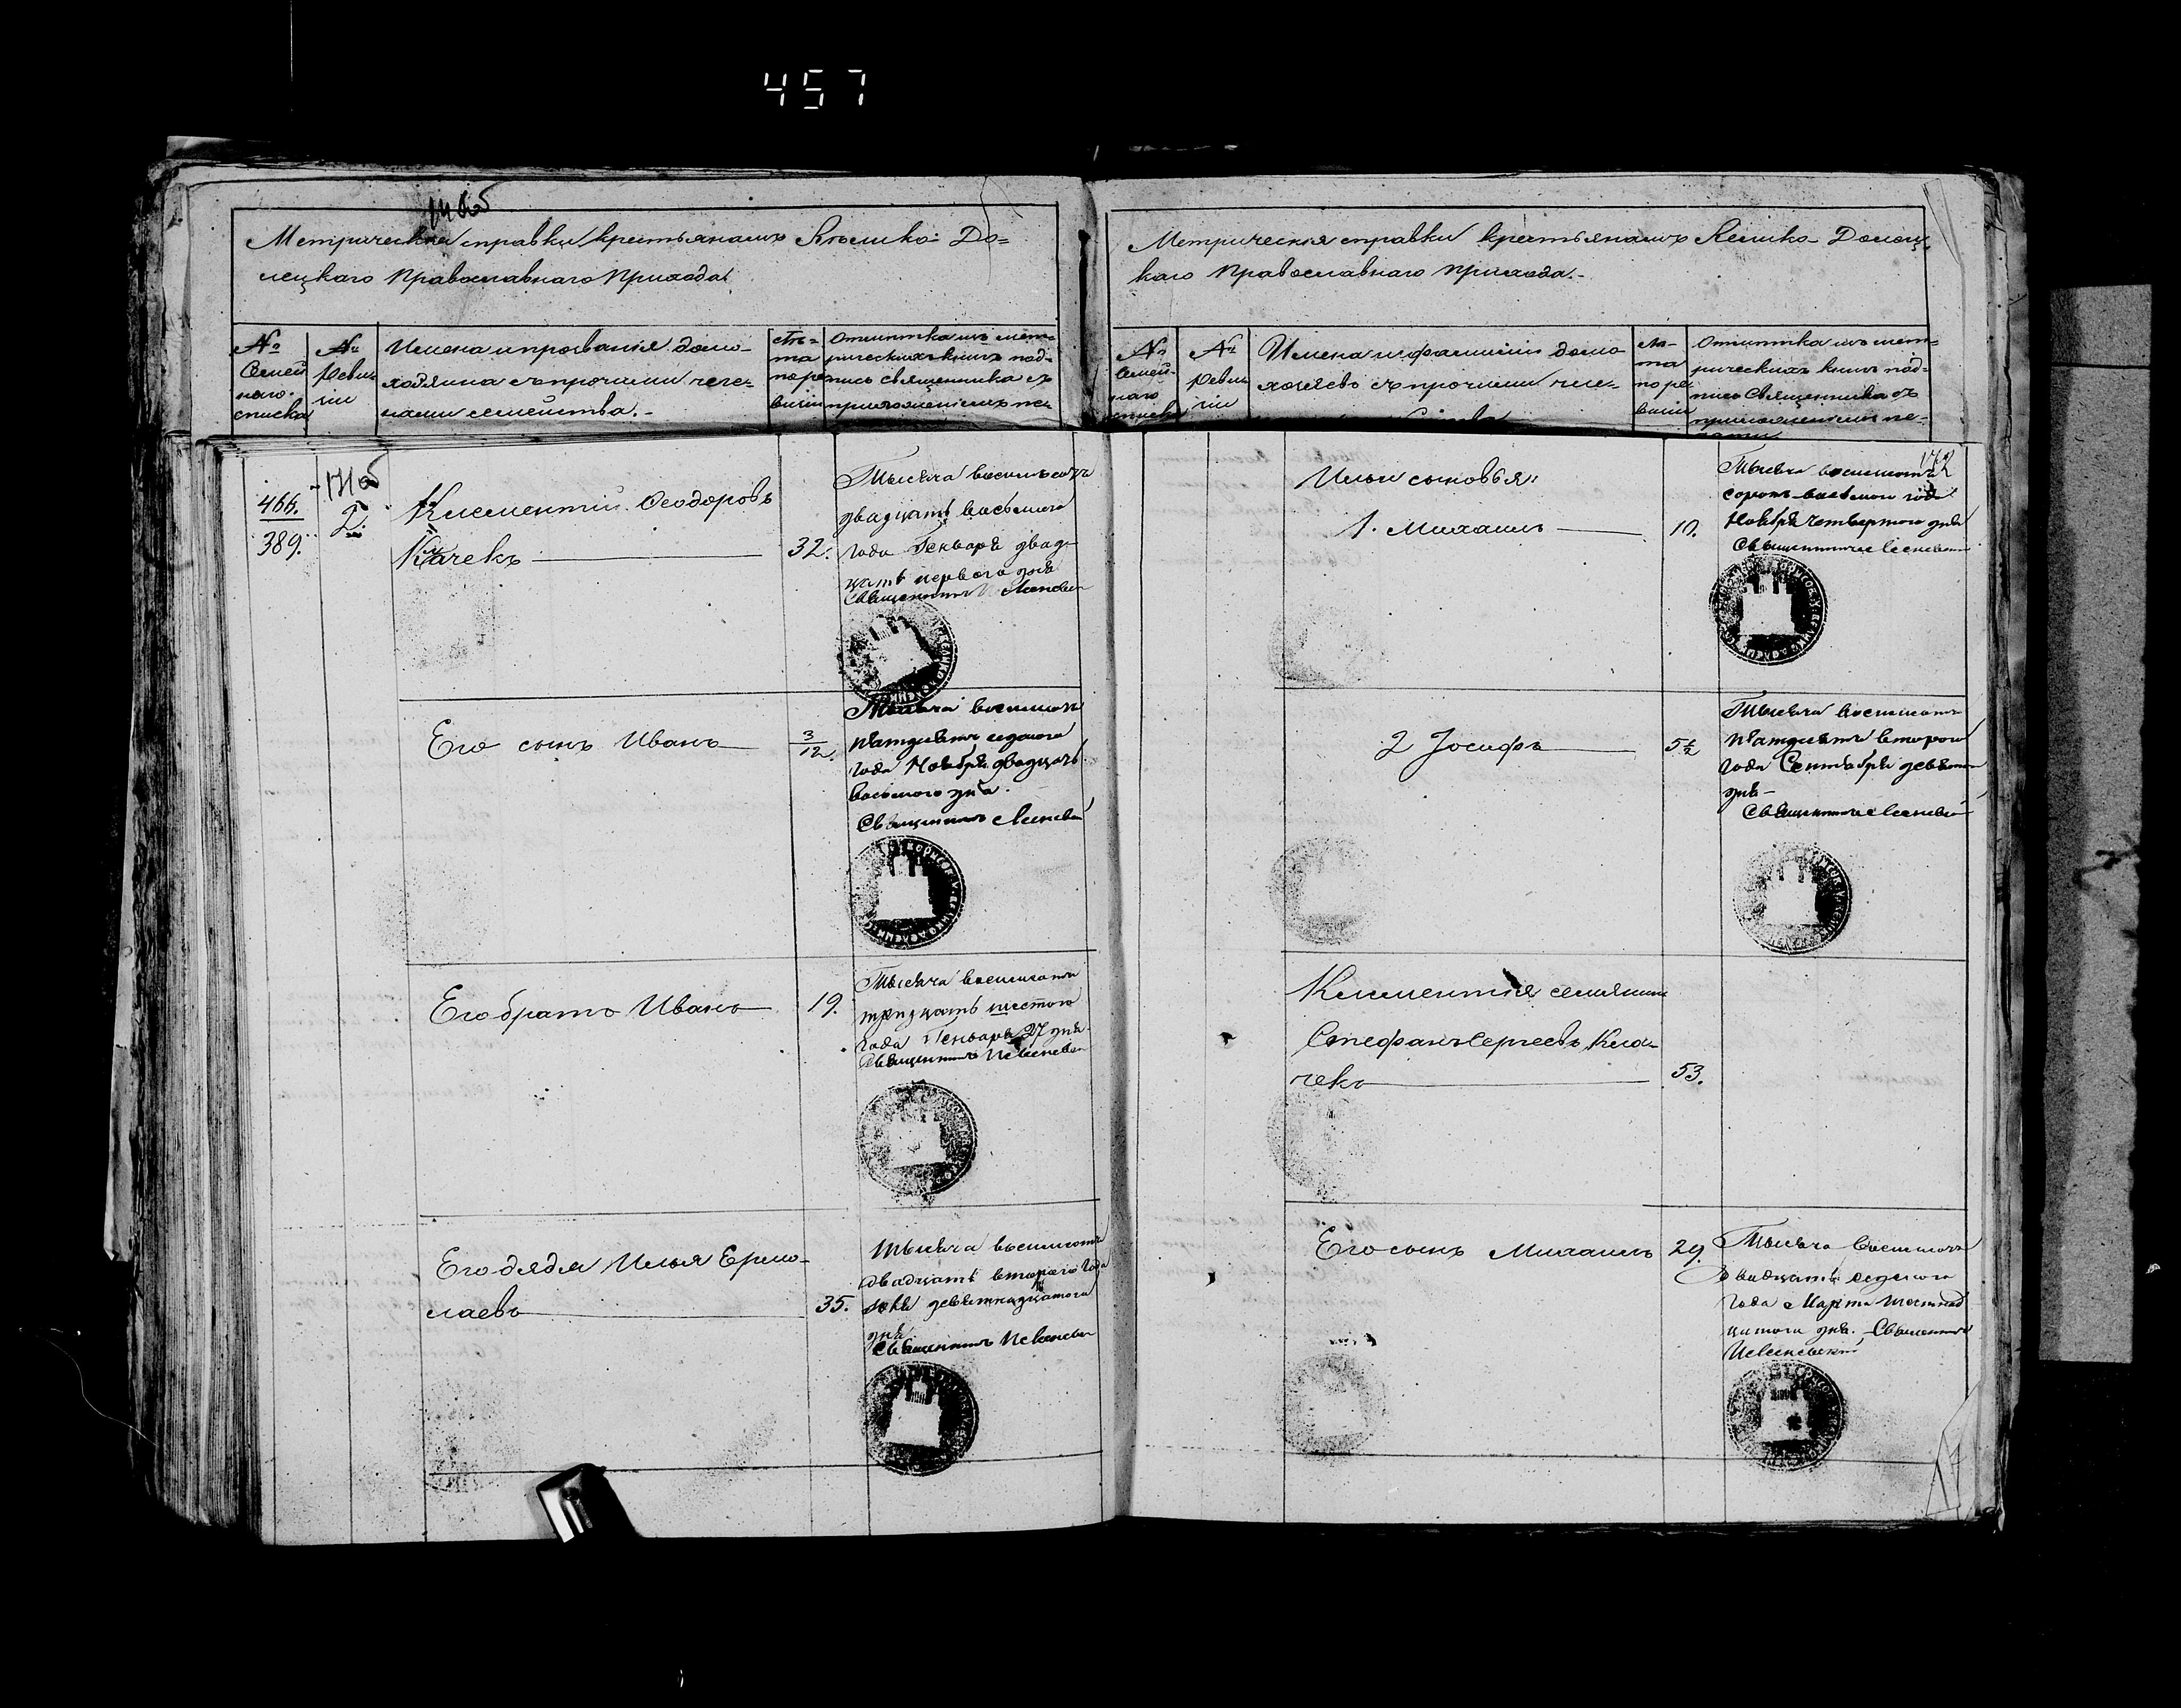 457
Метрическія справки крестьянамъ Велико-До=
лецкаго Православнаго Прихода
№ Семей наго списка
№ Реви зіи
Имена и прозванія домо-
хозяина съ прочими чле-
нами семейства.-
лѣ-та по ре визіи
Отмѣтка изъ мет-
рическихъ книгъ под-
пись священника съ
приложеніемъ пе-
466.
389.
171об
2.
Климентій Ѳеодоровъ
Клачекъ 32.
Тысяча восемьсотъ
двадцать восьмого
года Генваря двад-
цать перваго дня
Священникъ
Его сынъ Иванъ 3/12.
Тысяча восемсотъ
пятдесятъ седмого
года Ноября двадцать
восьмого дня.
Священникъ
Его братъ Иванъ 19.
Тысяча восемсотъ
тридцать шестого
года Генваря 27 дня
Священникъ
Его дядя Илья Ермо-
лаевъ 35.
Тысяча восемсотъ
двадцать второго года
девятнадцатого
дня
Священникъ
Метрическія справки крестьянамъ Велико-Долец-
каго Православнаго прихода.-
№ Семей-наго списка
№ Реви зіи
Имена и фамиліи домо
хозяевъ съ прочими чле-
лѣ-та по ре визіи
Отмѣтка изъ мет-
рическихъ книгъ под-
пись Священника съ
приложеніемъ пе-
172
Ильи сыновья:
1. Михаилъ 10.
Тысяча восемсотъ
сорокъ восьмого года
Ноября четвертого дня
Священникъ
2 Іосифъ 5½
Тысяча восемсотъ
пятдесятъ второго
года Сентября девятого
дня-
Священникъ
Климентія семянинъ
Стефанъ Сергеевъ Кла-
чекъ 53.
Его сынъ Михаилъ 29.
Тысяча восемсотъ
двадцать седмого
года Марта шестнад
цатого дня. Священникъ